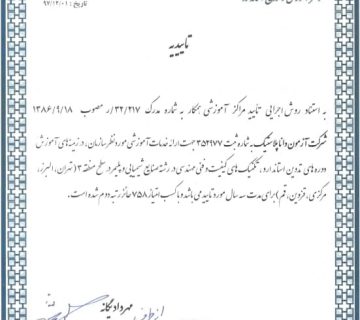 تاریخ : ۹۷/۱۲/۰۱
تاییدیه
به استناد روش اجرایی تأیید مراکز آموزشی همکار به شماره مدرک ۳۲/۲۱۷/ر مصوب ۱۳۸۶/۹/۱۸
شرکت آزمون دانا پلاستیک به شماره ثبت ۳۵۲۹۷۷ جهت ارائه خدمات آموزشی مورد نظر سازمان، در زمینه های آموزش
دوره های تدوین استاندارد، تکنیک های کیفیت و فنی مهندسی در رشته صنایع شیمیایی و پلیمر در سطح منطقه ۳ (تهران، البرز،
مرکزی، قزوین، قم) برای مدت سه سال مورد تایید می باشد و با کسب امتیاز ۷۵۸ حائز رتبه دوم شده است.
مهرداد یگانه
از طرف